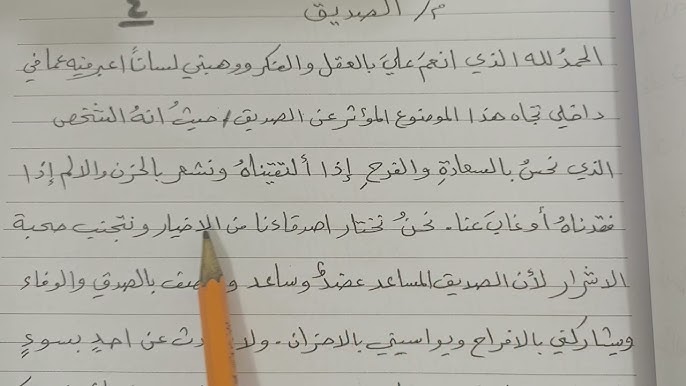 م/ الصديق ٤
الحمدُ لله الذي انعمَ عليَ بالعقل والفكر ووهبني لساناً اعبر فيه عما في
داخلي تجاه هذا الموضوع المؤثر عن الصديق، حيثُ انهُ الشخص
الذي نحسُ بالسعادةِ والفرحِ إذا ألتقيناهُ ونشعر بالحزن والالم إذا
فقدناهُ أو غابَ عنا. نحنُ نختار اصدقاءنا من الاخيار ونتجنب صحبة
الاشرار لأن الصديق المساعد عضدٌ وساعد بالصدق والوفاء
ويشاركني بالافراح ويواسيني بالاحزان. عن احدٍ بسوءٍ